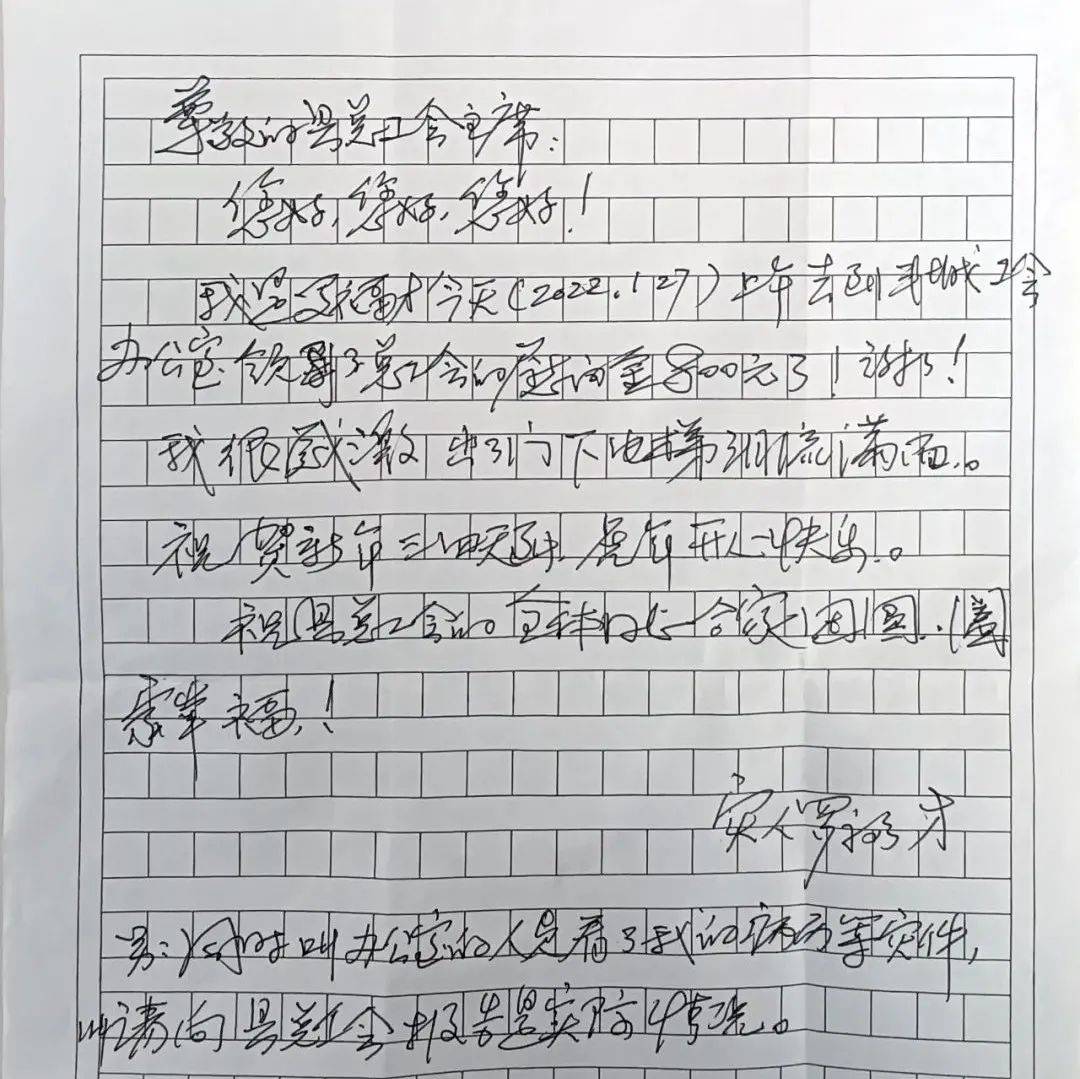 尊敬的县总工会主席:
您好,您好,您好!
我是罗福才今天(2022.1 27)上午去到 城工会
办公室领到了总工会的慰问金 00元了!谢 !
我很感激 出 门下电梯 泪流满面。
祝贺新年 天到 虎年开心快乐。
祝县总工会的 全体 合家团圆.(阖
家幸福!
人罗福才
另:同时叫办公室的人员看了我的病历等 件,
请向县总工会报告是实际情况。